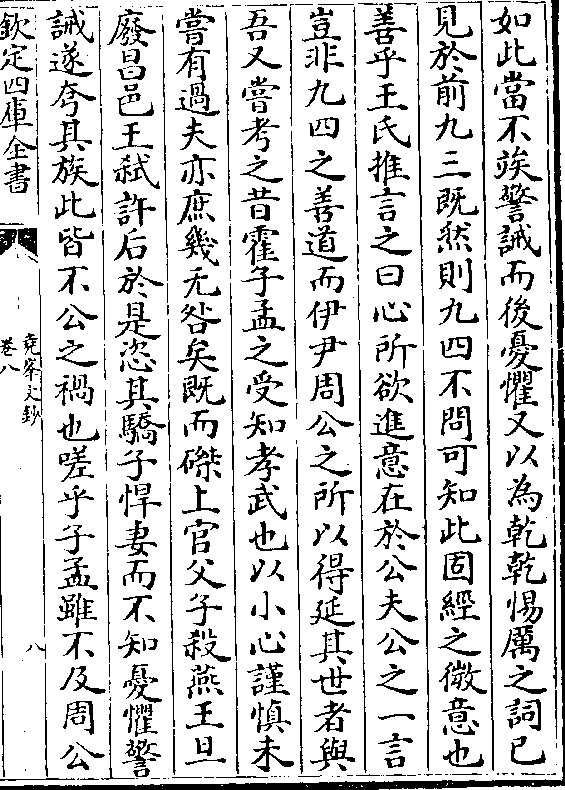 如此當不竢警誡而後憂懼又以為乾乾惕厲之詞已
見於前九三既然則九四不問可知此固經之微意也
善乎王氏推言之曰心所欲進意在於公夫公之一言
豈非九四之善道而伊尹周公之所以得延其世者與
吾又嘗考之昔霍子孟之受知孝武也以小心謹慎未
嘗有過夫亦庶幾无咎矣既而磔上官父子殺燕王旦
廢昌邑王弑許后於是恣其驕子悍妻而不知憂懼警
誡遂夸其族此皆不公之禍也嗟乎子孟雖不及周公
欽定四庫全書
堯峯文鈔
卷八
八